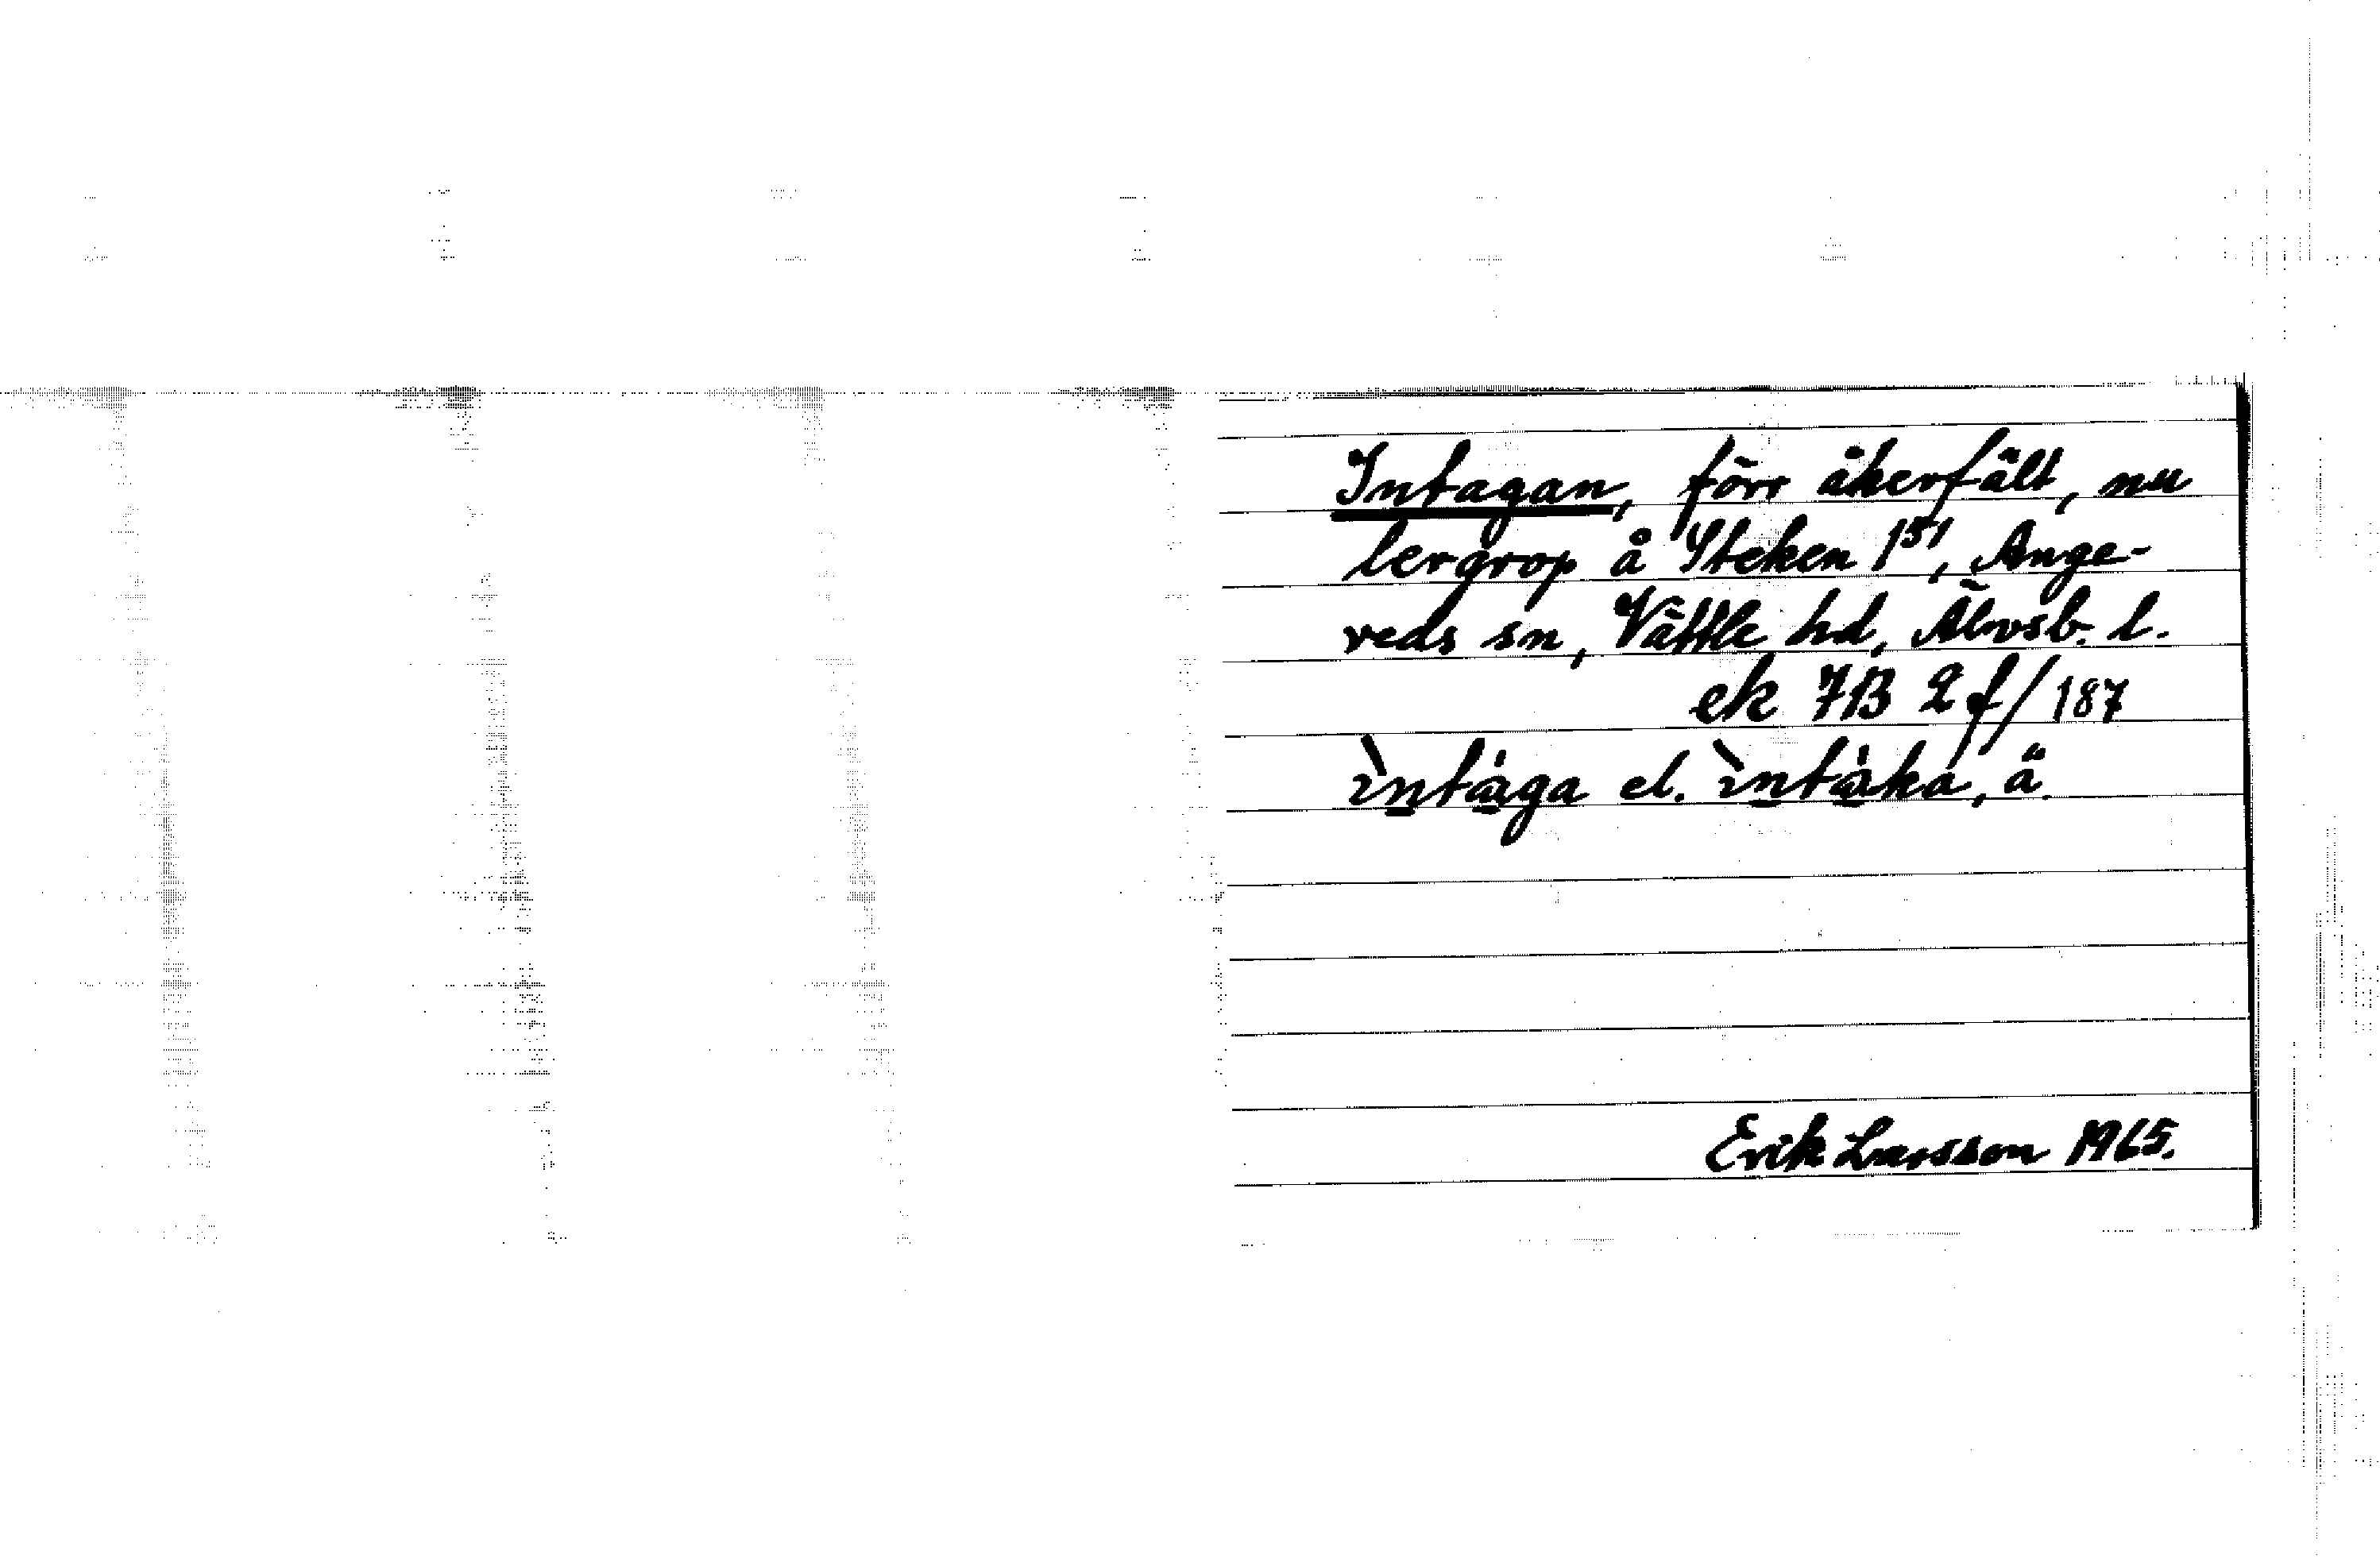 Intagan, förr åkerfält, nu
lergrop å Steken 1⁵¹, Ange-
reds sn, Vättle hd, Älvsb. l.
ek 7B 2f/187
ìntàga el. ìntàka, ä.
Erik Larsson 1965.